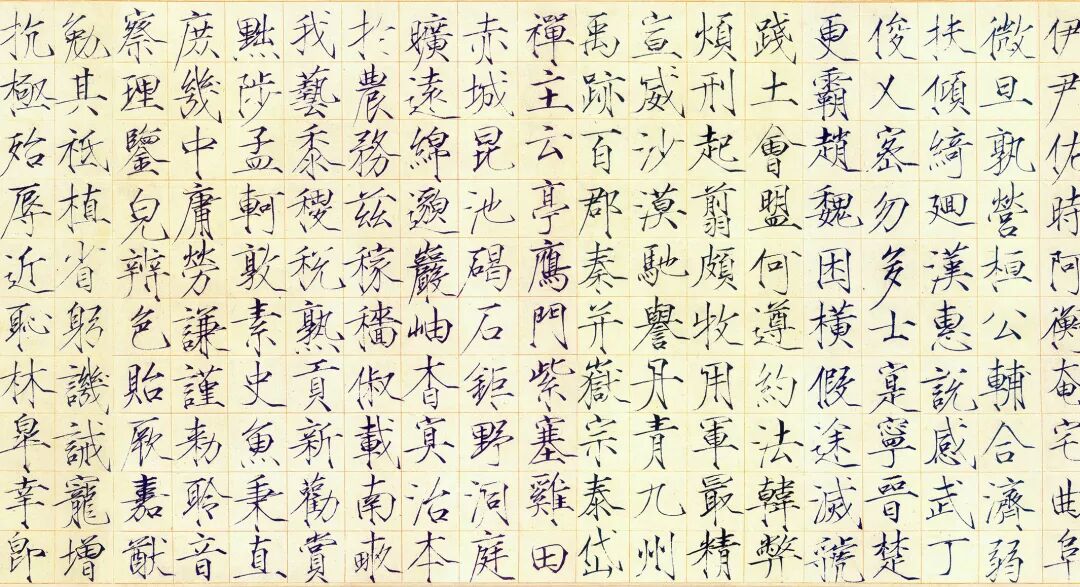 伊尹佐時阿衡奄宅曲阜
微旦孰營桓公輔合濟弱
扶傾綺廻漢惠說感武丁
俊乂密勿多士寔寧晉楚
更霸趙魏困橫假途滅虢
踐土會盟何遵約法韓弊
煩刑起翦頗牧用軍最精
宣威沙漠馳譽丹青九州
禹跡百郡秦并嶽宗泰岱
禪主云亭鴈門紫塞雞田
赤城昆池碣石鉅野洞庭
曠遠綿邈巖岫杳冥治本
於農務茲稼穡俶載南畝
我藝黍稷稅熟貢新勸賞
黜陟孟軻敦素史魚秉直
庶幾中庸勞謙謹勅聆音
察理鑒皃辨色貽厥嘉猷
勉其祗植省躬譏誡寵增
抗極殆辱近恥林皐幸即